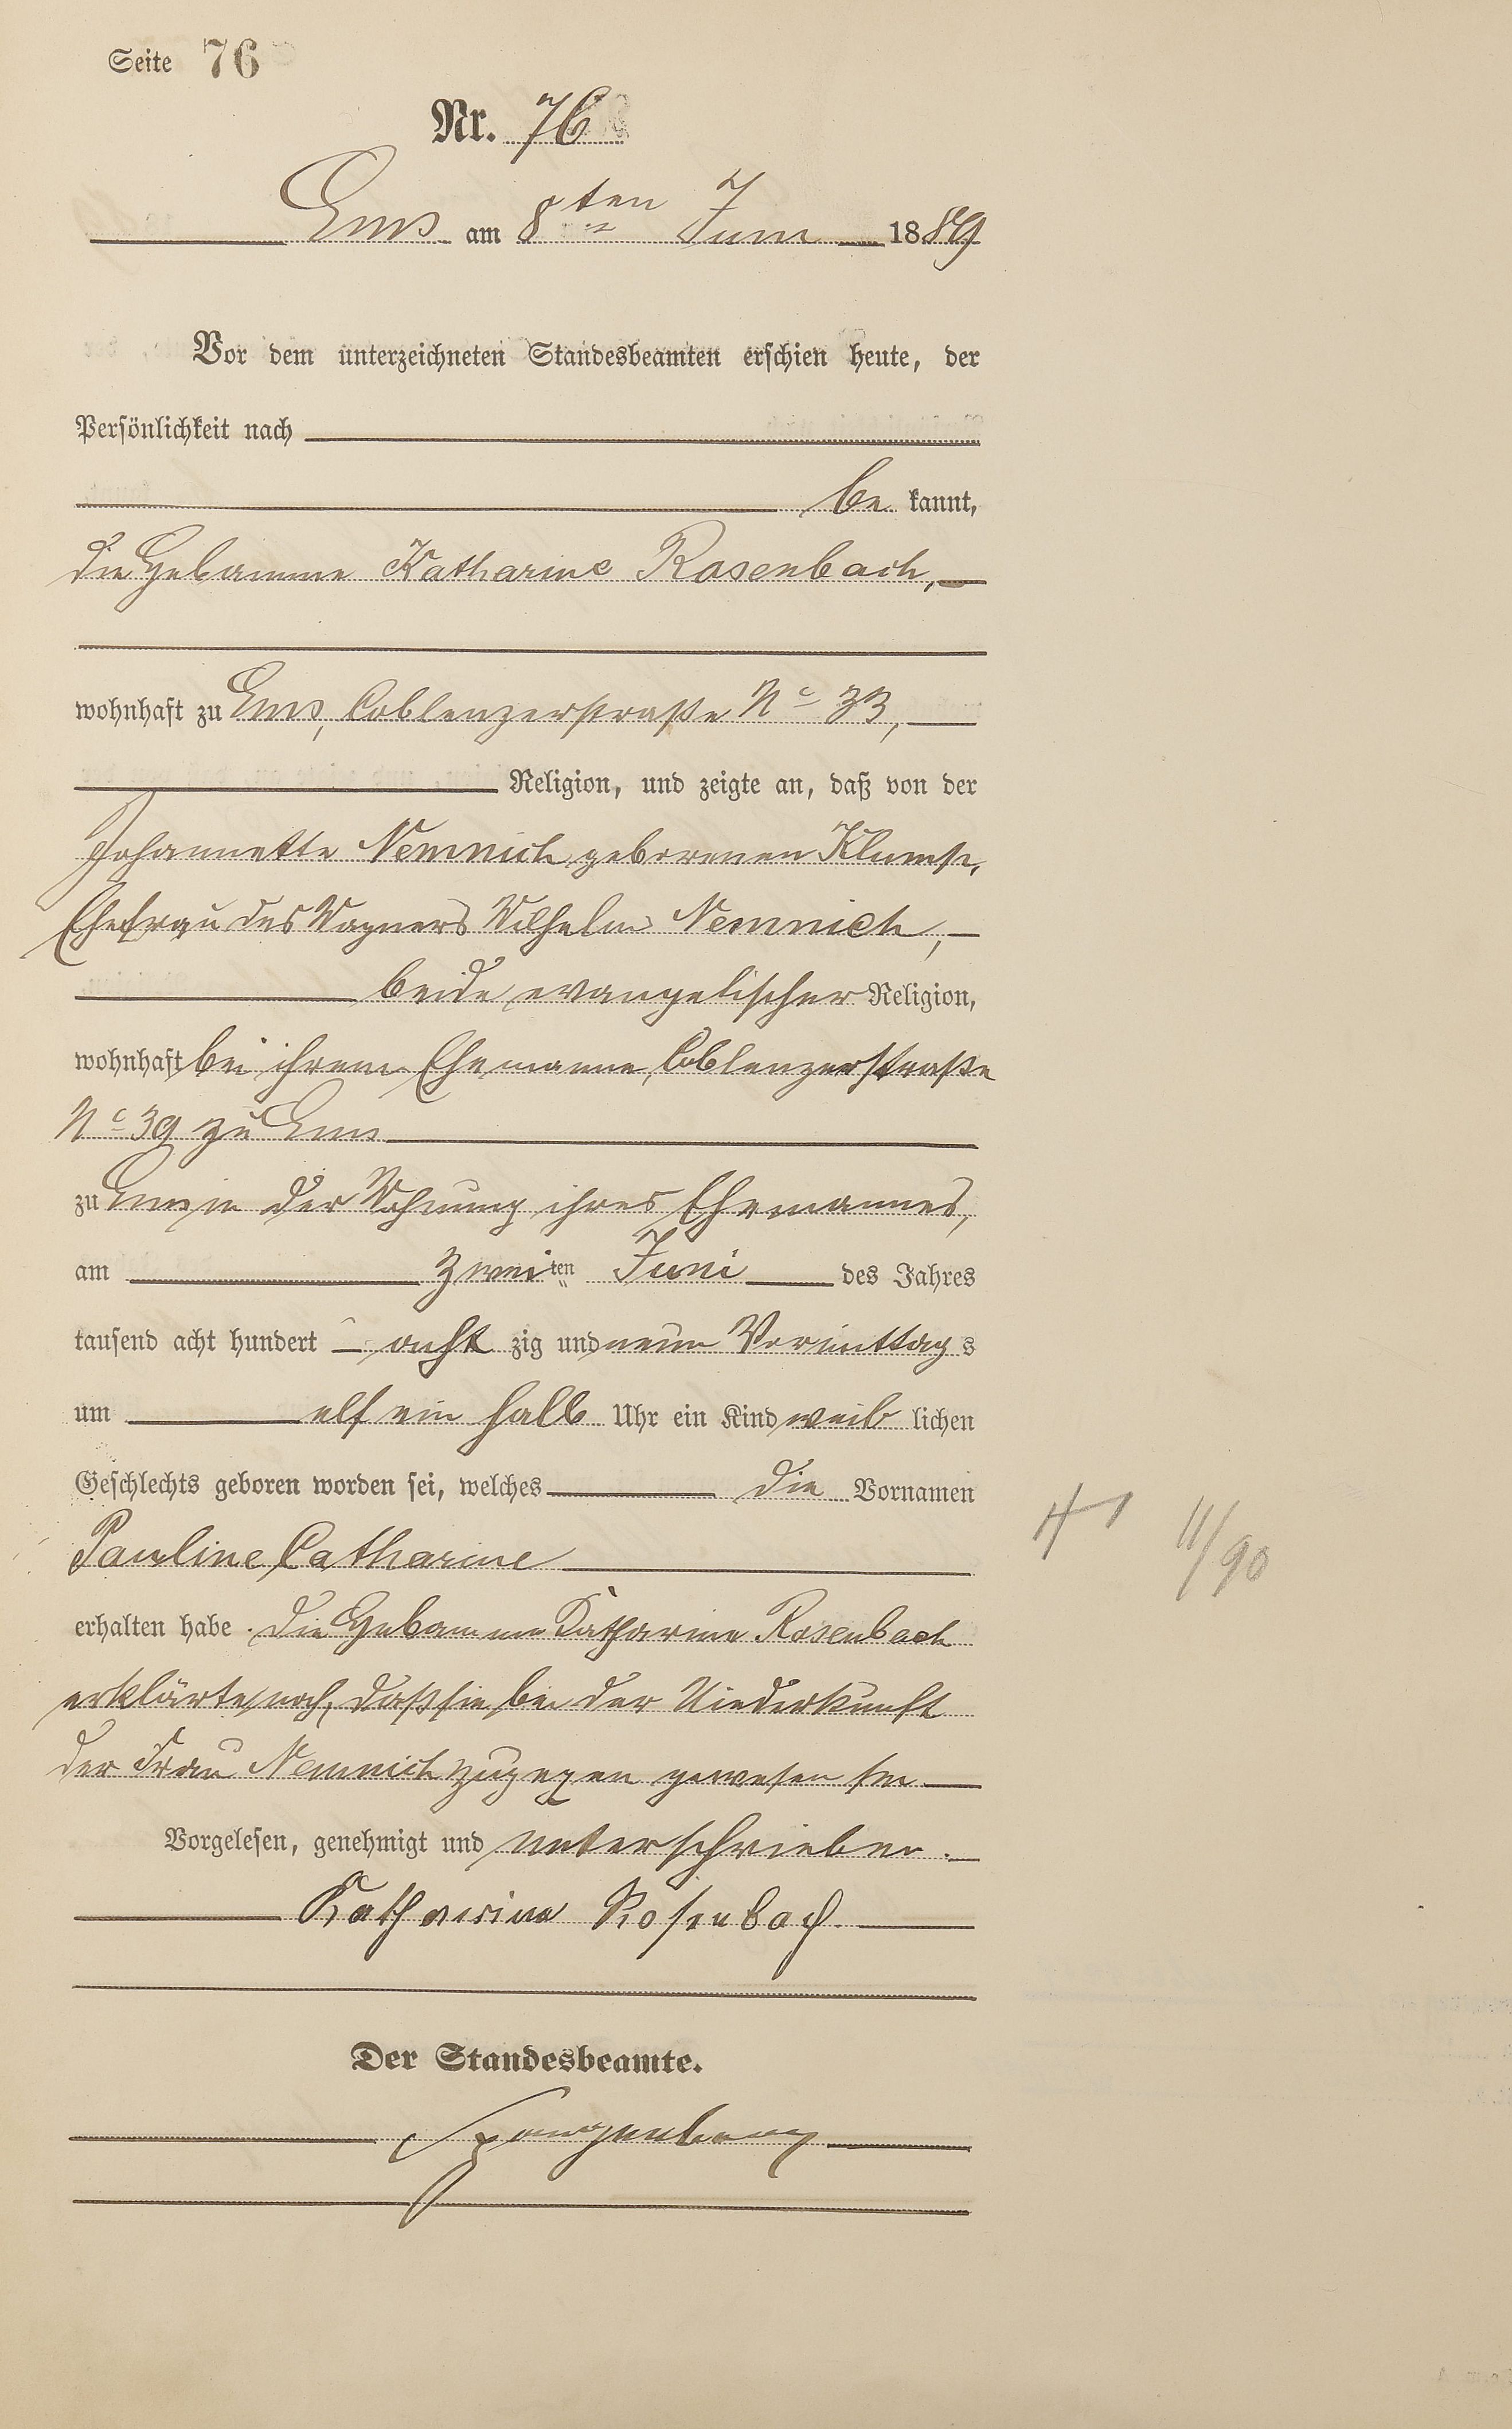 Seite 76
Nr. 76
Ems am 8ten Juni 1889
Vor dem unterzeichneten Standesbeamten erschien heute, der
Persönlichkeit nach
be kannt,
die Hebamme Katharine Rosenbach,
wohnhaft zu Ems, Coblenzerstraße No 33,
Religion, und zeigte an, daß von der
Johannette Nemnich geborenen
Ehefrau des Wagners Wilhelm Nemnich,
beide evangelischer Religion,
wohnhaft bei ihrem Ehemanne, Coblenzerstraße
No 39 zu Ems
zu Ems in der Wohnung ihres Ehemannes,
am zweiten Juni des Jahres
tausend acht hundert acht zig und neun Vormittag s
um elf ein halb Uhr ein Kind weib lichen
Geschlechts geboren worden sei, welches die Vornamen
Pauline Catharine
erhalten habe. Die Hebamme Katharine Rosenbach
erklärte noch, daß sie bei der Niederkunft
der Frau Nemnich zugegen gewesen sei
Vorgelesen, genehmigt und unterschrieben.
Katharina Rosenbach.
Der Standesbeamte.
11/90